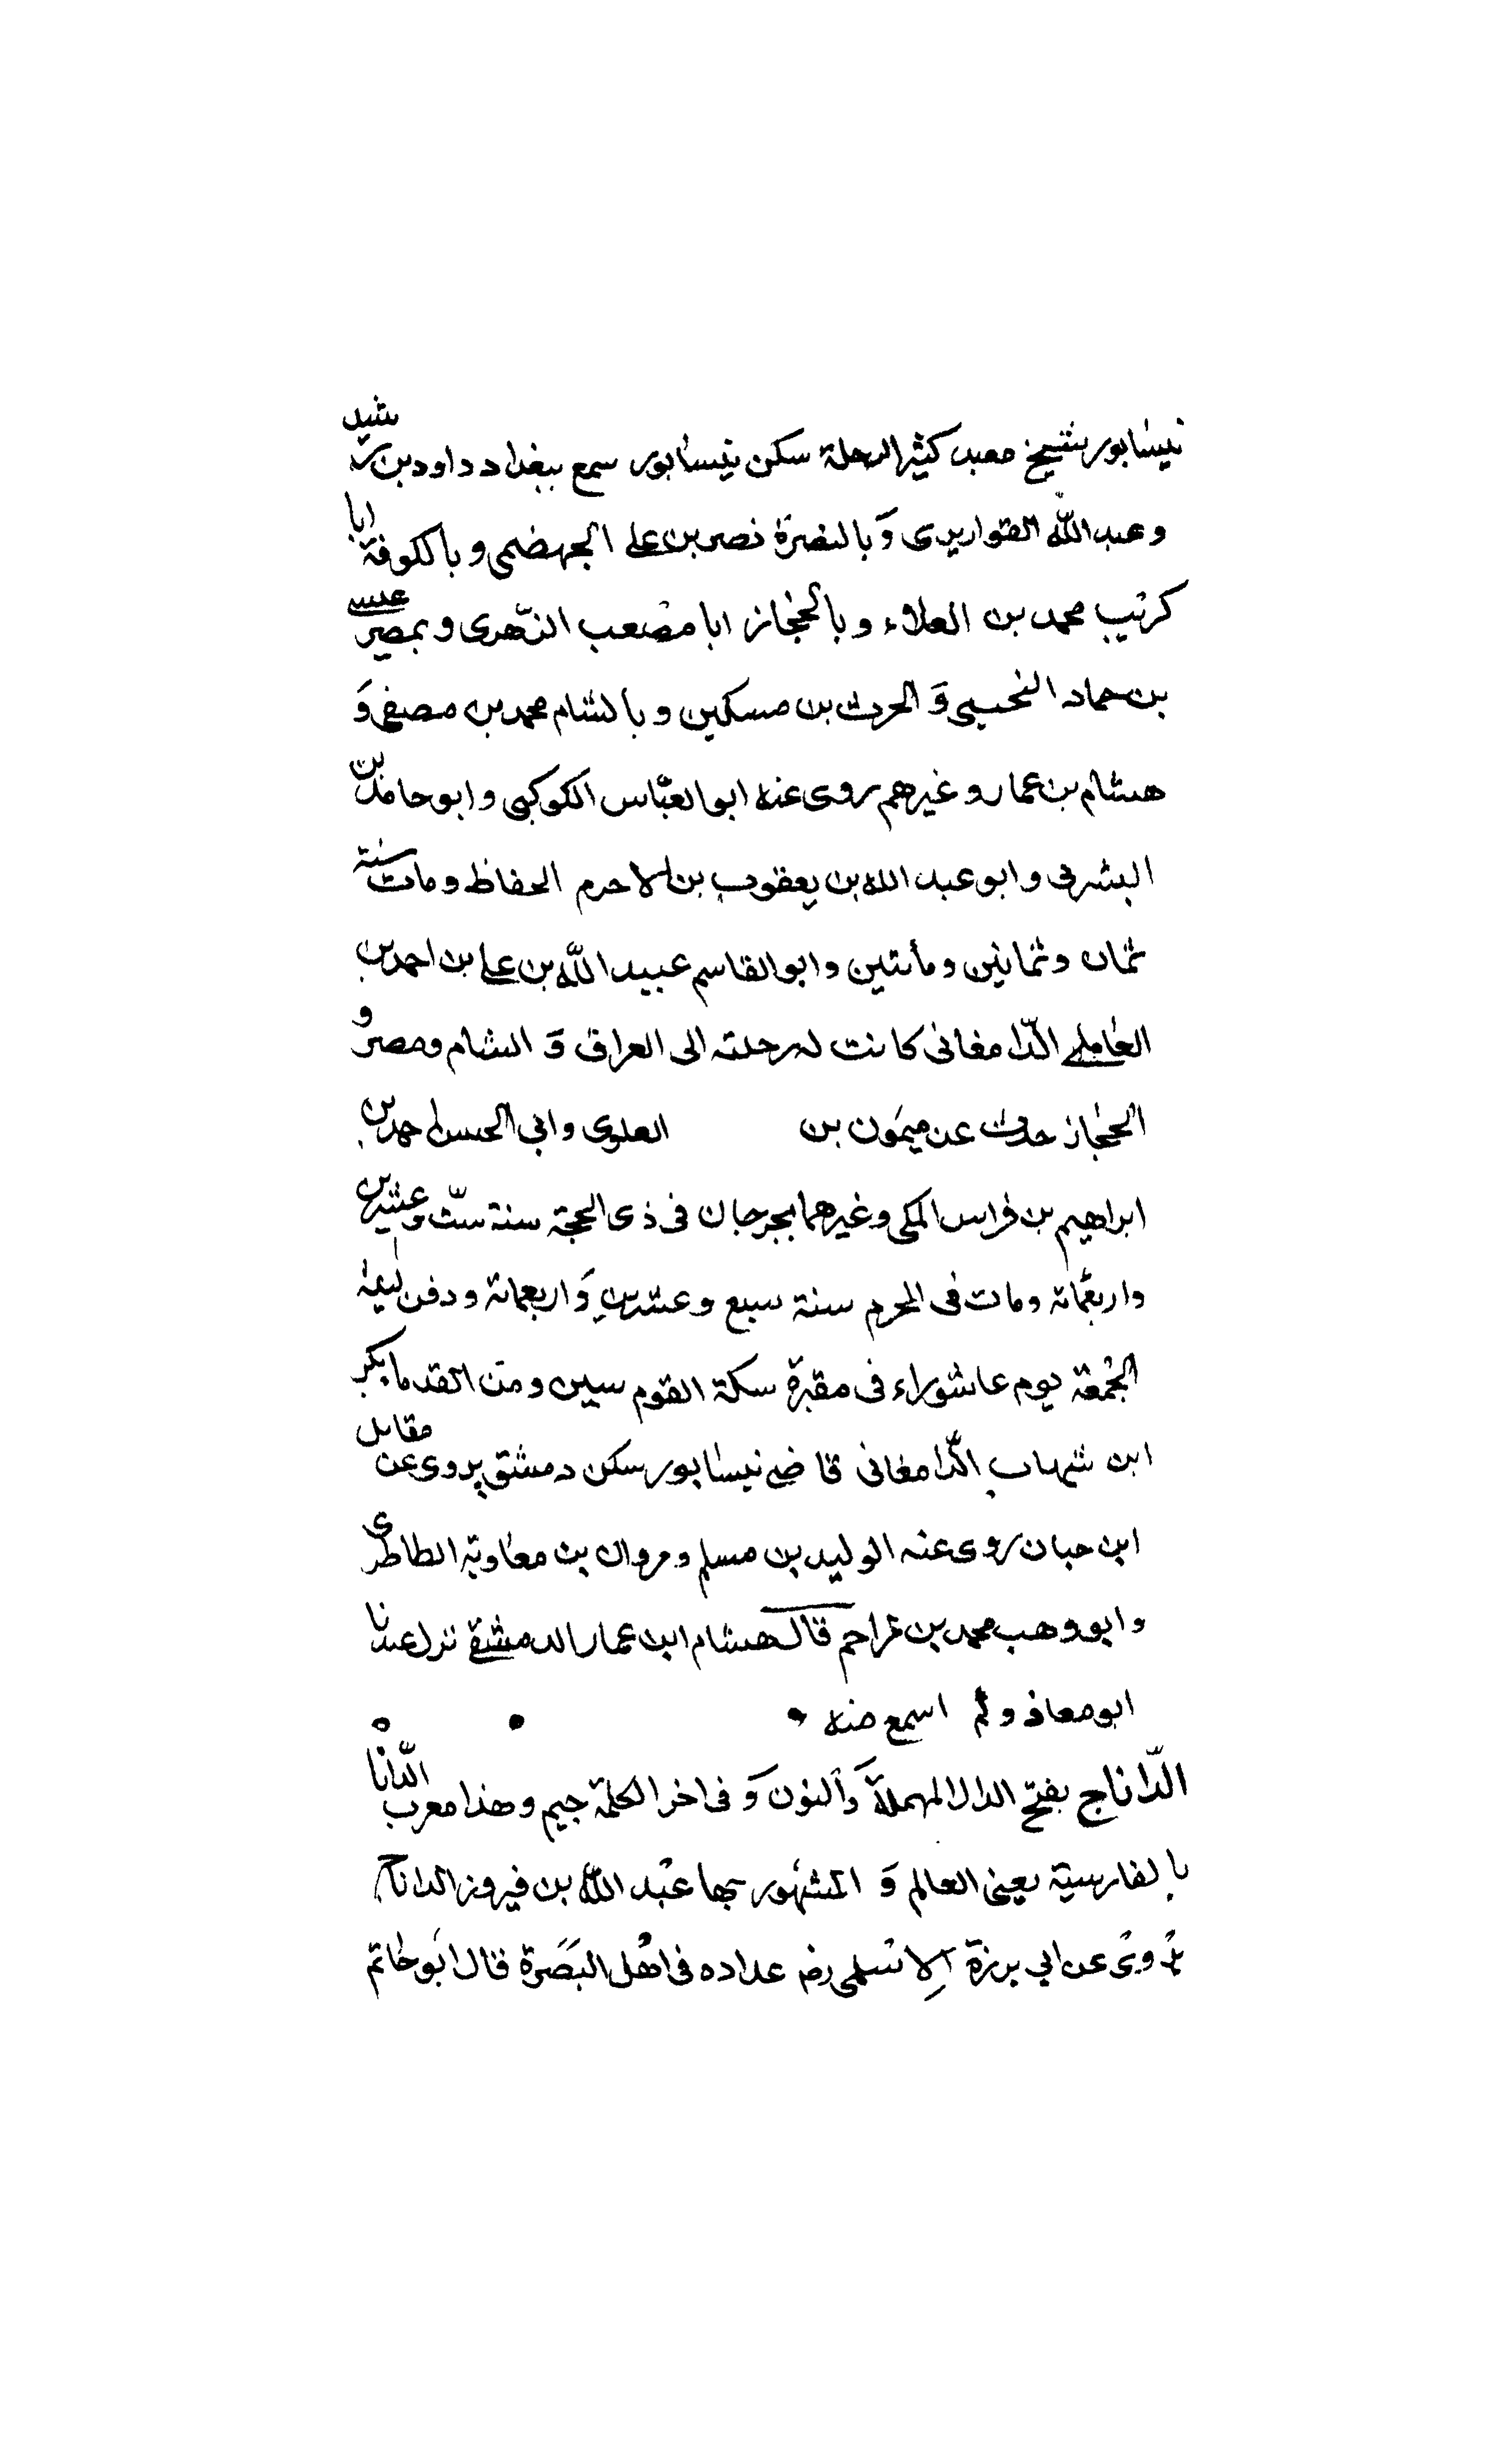 نيسابور شيخ معبد كثير الرحلة سكن نيسابور سمع ببغداد داود بن رشيد
وعبد الله القواريرى وَبالبصرة نصر بن على الجهضمى وبالكوفة ابا
كريب محمد بن العلاء وبالحجاز ابا مصعب الزّهرى وبمصر عيسى
بن حماد التحيبى وَ الحرث بن مسكين وبالشام محمد بن مصفى وَ
هشام بن عمار وغيرهم روى عنه ابو العبّاس الكوكبى وابو حامد بن
الشرقى وابو عبد الله بن يعقوب بن الاحرم الحفاظ ومات سنة
ثمان وثمانين ومأتين وابو القاسم عبيد اللّه بن على بن احمد بن
العاملى الدّامغانى كانت له رحلته الى العراق وَ الشام ومصر و
الحجاز حدث عن ميمون بن العلوى وابي الحسن احمد بن
ابراهيم بن فراس المكى وغيرهما بجرجان فى ذى الحجة سنة ستّ وعشرين
واربعمائة ومات فى المحرم سنة سبع وعشرين وَاربعمائة ودفن ليلة
الجمعة يوم عاشوراء فى مقبرة سكة القوم سين ومن القدما بكر
ابن شهاب الدّامغانى قاضى نيسابور سكن دمشق يروى عن مقاتل
ابن حبان روى عنه الوليد بن مسلم ومروان بن معاوية الطاطرى
وابو وهب محمد بن مزاحم قال هشام ابن عمار الدمشقى نزل عندنا
ابو معاذ ولم اسمع منه
الدّاناج بفتح الدال المهملة وَالنون وَ فى اخر الكلمة جيم وهذا معرب الدّانا
بالفارسية يعنى العالم وَ المشهور بها عبد اللّه بن فيروز الداناج
يروى عن ابي برزة الاسلمى رضـ عداده فى اهل البَصَرة قال ابو حاتم